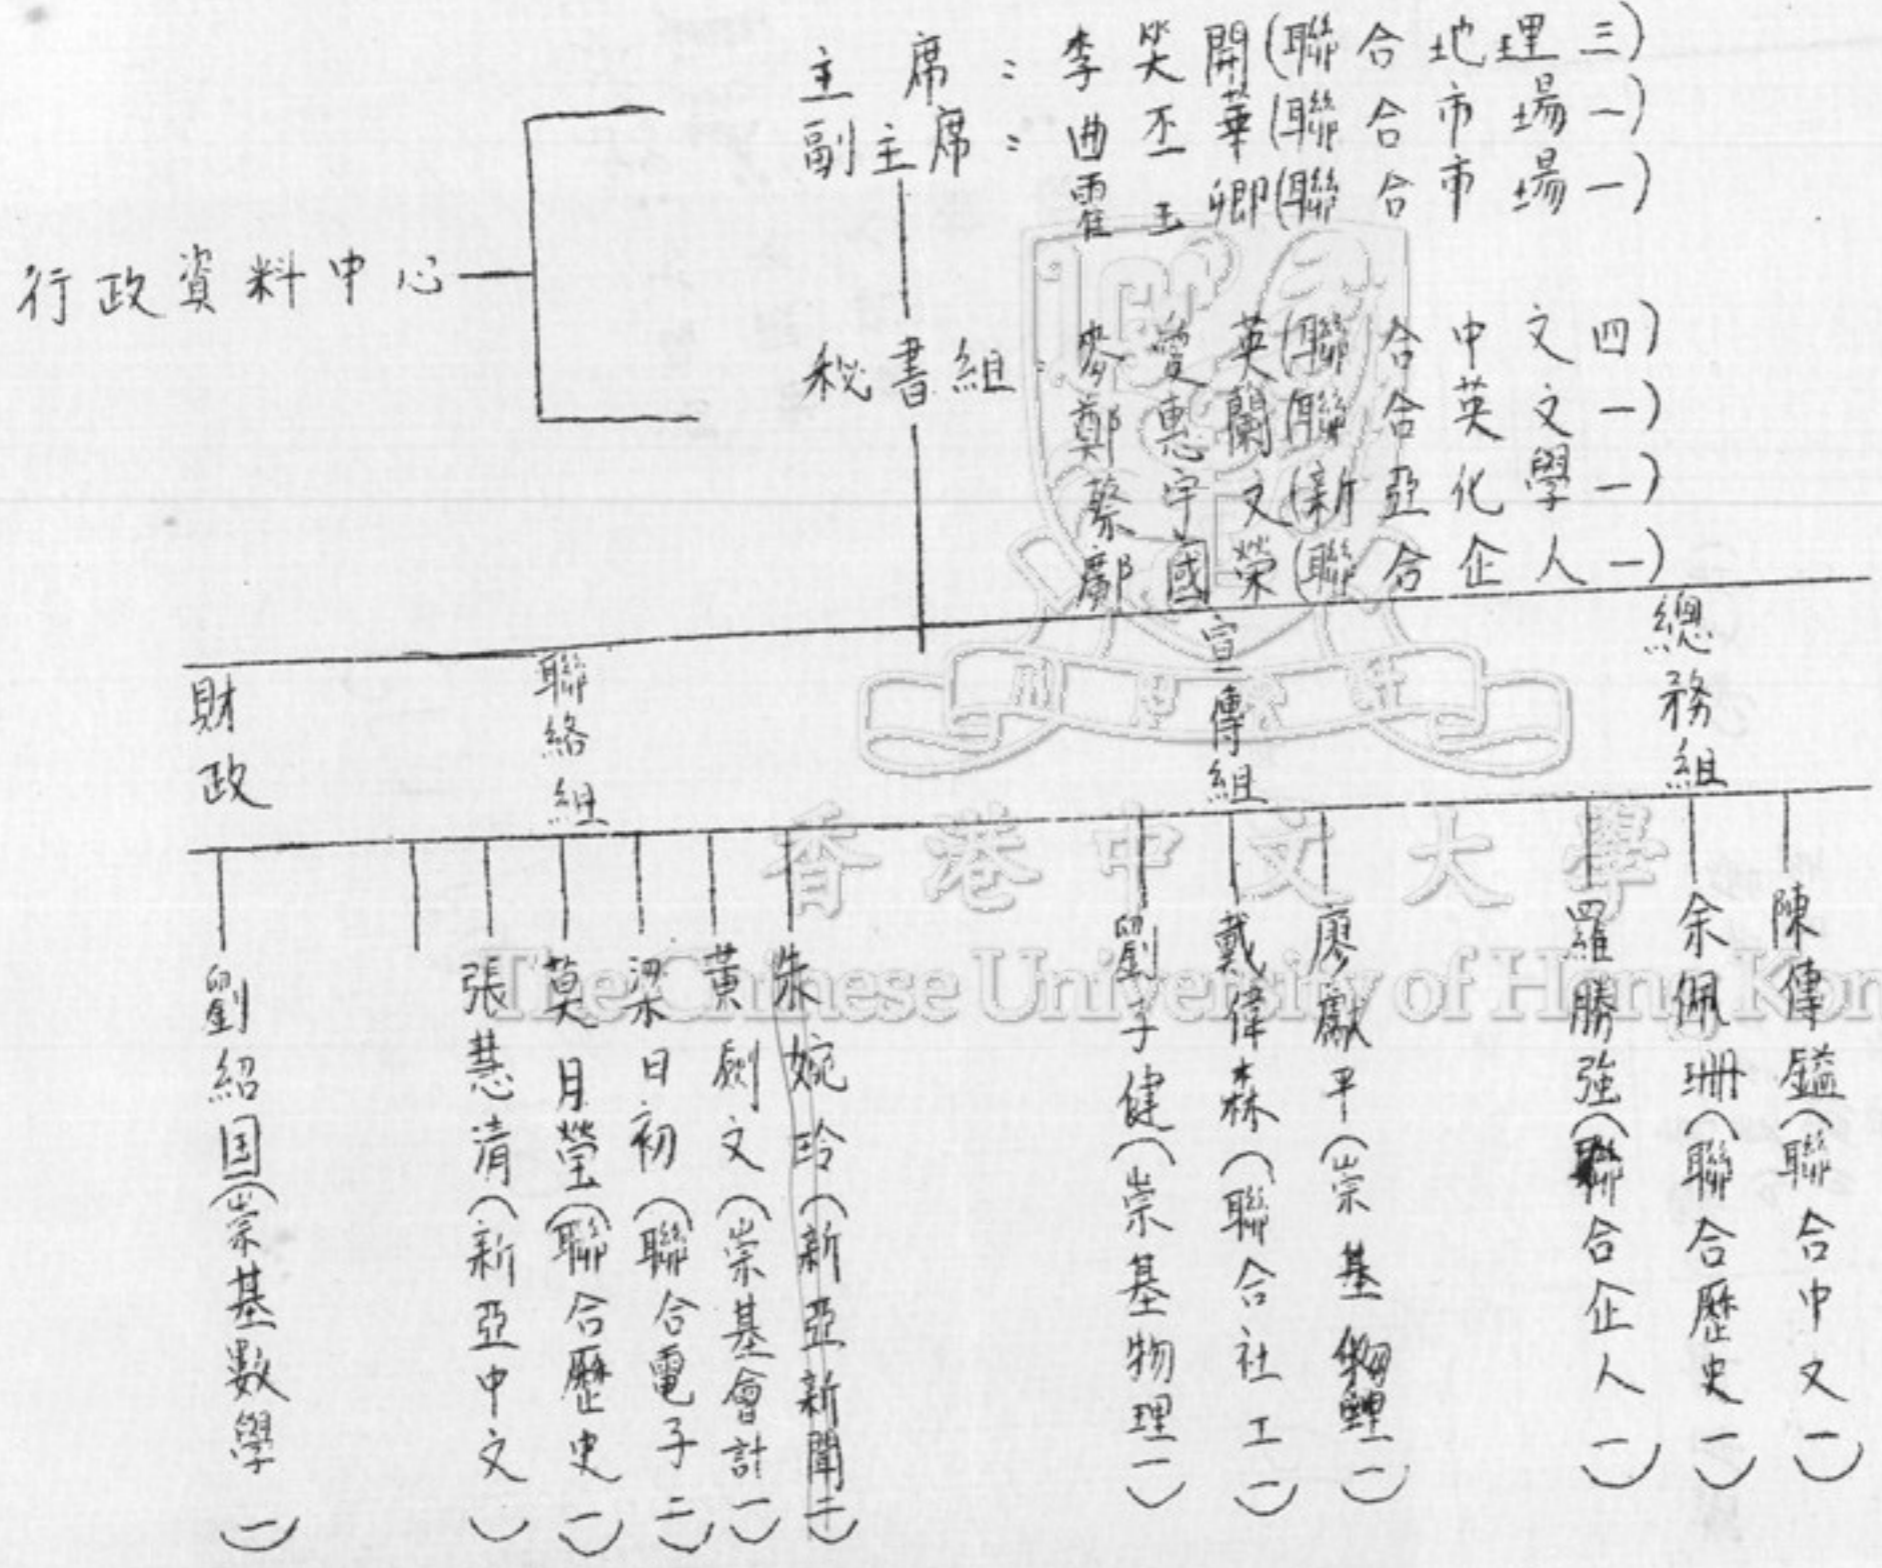 主席：李炎開(聯合地理三)
副主席：曲丕華(聯合市場一)
霍玉卿(聯合市場一)
行政資料中心
秘書組：麥愛英(聯合中文四)
鄭惠蘭(聯合英文一)
黎宇文(新亞化學一)
鄺國榮(聯合企人一)
財政
聯絡組
宣傳組
總務組
劉紹国(崇基數學一)
張慧清(新亞中文)
莫月瑩(聯合歷史一)
梁日初(聯合電子二)
黃劍文(崇基會計一)
朱婉玲(新亞新聞二)
劉子健(崇基物理一)
戴偉森(聯合社工一)
廖獻平(崇基物理一)
羅勝強(聯合企人一)
余佩珊(聯合歷史一)
陳傳鎰(聯合中文一)
香港中文大學
The Chinese University of Hong Kon